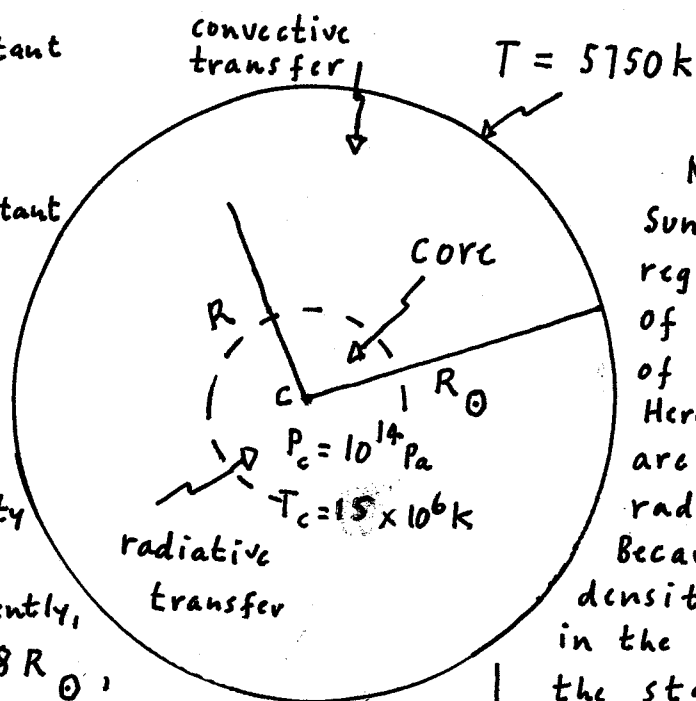 tant
convective
transfer
T = 5750 k
tant
core
R
C
R☉
P_c = 10^14 Pa
T_c = 15 × 10^6 k
radiative
transfer
ty
ently,
8 R☉,
Sun
reg
of
of
Her
are
rad
Becau
densit
in the
the sta